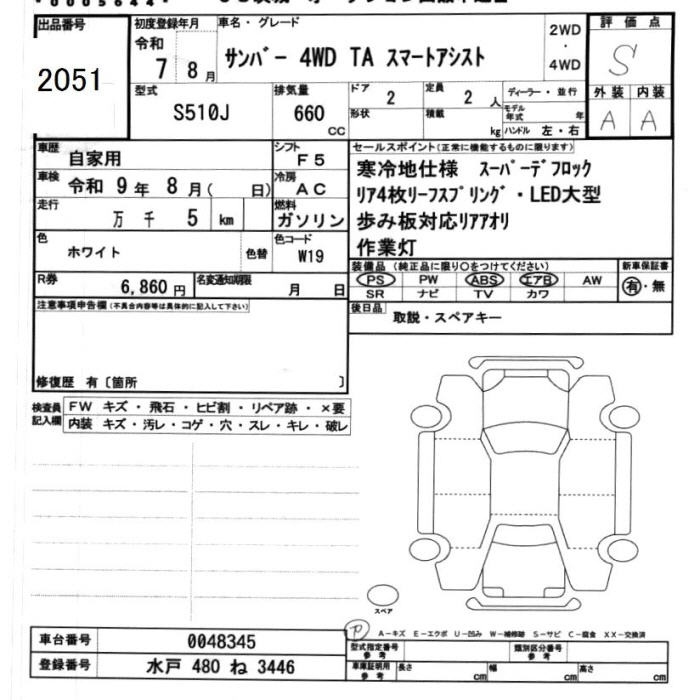 出品番号
2051
初度登録年月
令和
7 8月
車名・グレード
サンバー 4WD TA スマートアシスト
2WD
・
4WD
評価点
S
外装 内装
A A
型式
S510J
排気量
660
CC
ドア
2
定員
2 人
形状
積載
kg
ディーラー・並行
モデル年式 年
ハンドル 左・右
車歴
自家用
シフト
F5
車検
令和 9年 8月( 日)
冷房
AC
走行
万 千 5 km
燃料
ガソリン
色
ホワイト
色替
色コード
W19
R券
6,860円
名変通知期限
月 日
セールスポイント(正常に機能するものに限ります)
寒冷地仕様 スーパーデフロック
リア4枚リーフスプリング・LED大型
歩み板対応リアアオリ
作業灯
装備品(純正品に限り○をつけてください)
PS PW ABS エアB AW
SR ナビ TV カワ
新車保証書
有・無
後日品
取説・スペアキー
注意事項申告欄(不具合内容等は具体的に記入して下さい)
修復歴 有〔箇所 〕
検査員
記入欄
FW キズ・飛石・ヒビ割・リペア跡・×要
内装 キズ・汚レ・コゲ・穴・スレ・キレ・破レ
スペア
A−キズ E−エクボ U−凹み W−補修跡 S−サビ C−腐食 XX−交換済
車台番号
0048345
登録番号
水戸 480 ね 3446
型式指定番号
参考
類別区分番号
参考
車庫証明用
参考
長さ cm
幅 cm
高さ cm